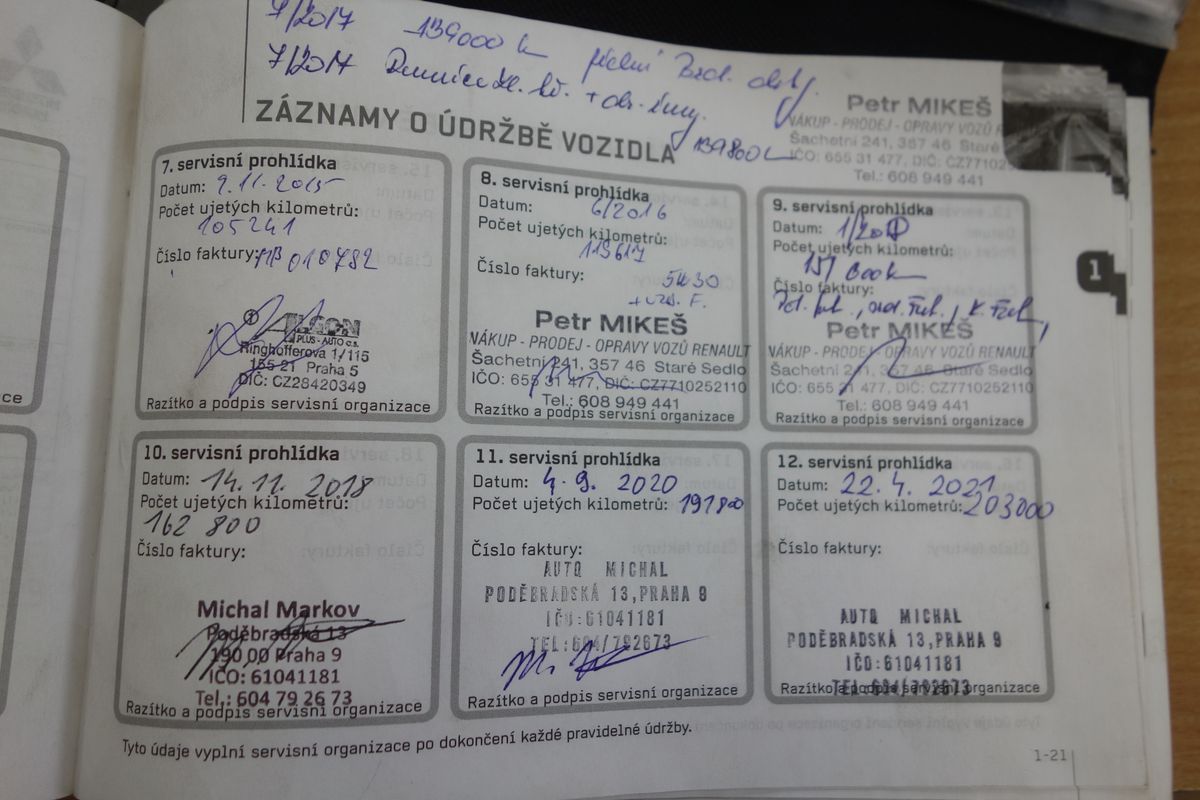 7/2017 139000 k přední Brzd.
7/2017
139800 k
ZÁZNAMY O ÚDRŽBĚ VOZIDLA
Petr MIKEŠ
NÁKUP - PRODEJ - OPRAVY VOZŮ R
Šachetní 241, 357 46 Staré
IČO: 655 31 477, DIČ: CZ77102
Tel.: 608 949 441
7. servisní prohlídka
Datum: 9.11.2015
Počet ujetých kilometrů:
105241
Číslo faktury: 010782
ALGON
PLUS - AUTO a.s.
Ringhofferova 1/115
155 21 Praha 5
DIČ: CZ28420349
Razítko a podpis servisní organizace
8. servisní prohlídka
Datum: 6/2016
Počet ujetých kilometrů:
119617
Číslo faktury: 5W30
F.
Petr MIKEŠ
NÁKUP - PRODEJ - OPRAVY VOZŮ RENAULT
Šachetní 241, 357 46 Staré Sedlo
IČO: 655 31 477, DIČ: CZ7710252110
Tel.: 608 949 441
Razítko a podpis servisní organizace
9. servisní prohlídka
Datum:
Počet ujetých kilometrů:
Číslo faktury:
Petr MIKEŠ
NÁKUP - PRODEJ - OPRAVY VOZŮ RENAULT
Šachetní 241, 357 46 Staré Sedlo
IČO: 655 31 477, DIČ: CZ7710252110
Tel.: 608 949 441
Razítko a podpis servisní organizace
1
10. servisní prohlídka
Datum: 14.11. 2018
Počet ujetých kilometrů:
162 800
Číslo faktury:
Michal Markov
Poděbradská 13
190 00 Praha 9
IČO: 61041181
Tel.: 604 79 26 73
Razítko a podpis servisní organizace
11. servisní prohlídka
Datum: 4. 9. 2020
Počet ujetých kilometrů: 191800
Číslo faktury:
AUTO MICHAL
PODĚBRADSKÁ 13,PRAHA 9
IČO:61041181
TEL:604/792673
Razítko a podpis servisní organizace
12. servisní prohlídka
Datum: 22. 4. 2021
Počet ujetých kilometrů: 203000
Číslo faktury:
AUTO MICHAL
PODĚBRADSKÁ 13,PRAHA 9
IČO:61041181
TEL:604/792673
Razítko a podpis servisní organizace
Tyto údaje vyplní servisní organizace po dokončení každé pravidelné údržby.
1-21